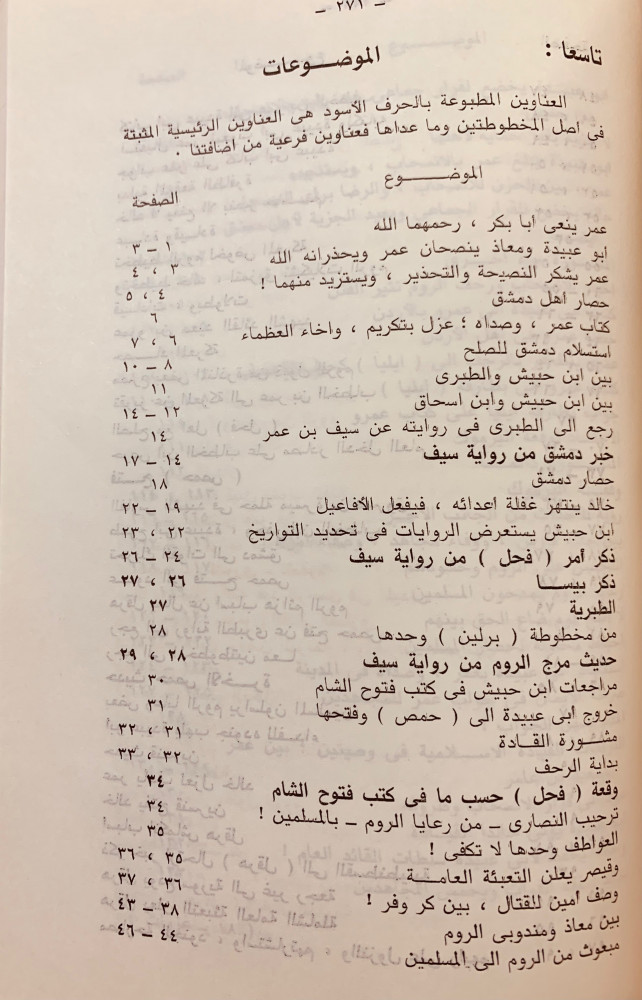 – ٢٧١ –
تاسعا : الموضـــوعات
العناوين المطبوعة بالحرف الأسود هى العناوين الرئيسية المثبتة
فى اصل المخطوطتين وما عداها فعناوين فرعية من اضافتنا .
الموضــــــوع الصفحة
عمر ينعى ابا بكر ، رحمهما الله ١ – ٣
ابو عبيدة ومعاذ ينصحان عمر ويحذرانه الله ٣ ، ٤
عمر يشكر النصيحة والتحذير ، ويستزيد منهما ! ٤ ، ٥
حصار اهل دمشق ٦
كتاب عمر ، وصداه ؛ عزل بتكريم ، واخاء العظماء ٦ ، ٧
استسلام دمشق للصلح ٨ – ١٠
بين ابن حبيش والطبرى ١١
بين ابن حبيش وابن اسحاق ١٢ – ١٤
رجع الى الطبرى فى روايته عن سيف بن عمر ١٤
خبر دمشق من رواية سيف ١٤ – ١٧
حصار دمشق ١٨
خالد ينتهز غفلة أعدائه ، فيفعل الأفاعيل ١٩ – ٢٢
ابن حبيش يستعرض الروايات فى تحديد التواريخ ٢٢ ، ٢٣
ذكر أمر ( فحل ) من رواية سيف ٢٤ – ٢٦
ذكر بيســـا ٢٦ ، ٢٧
الطبرية ٢٧
من مخطوطة ( برلين ) وحدها ٢٨
حديث مرج الروم من رواية سيف ٢٨ ، ٢٩
مراجعات ابن حبيش فى كتب فتوح الشام ٣٠
خروج ابى عبيدة الى ( حمص ) وفتحها ٣١
مشـــورة القـــادة ٣١ ، ٣٢
بداية الزحف ٣٢ ، ٣٣
وقعة ( فحل ) حسب ما فى كتب فتوح الشام ٣٤
ترحيب النصارى – من رعايا الروم – بالمسلمين ! ٣٤
العواطف وحدها لا تكفى ! ٣٥
وقيصر يعلن التعبئة العامـــة ٣٥ ، ٣٦
وصف أمين للقتال ، بين كر وفر ! ٣٦ ، ٣٧
بين معاذ ومندوبى الروم ٣٨ – ٤٣
مبعوث من الروم الى المسلمين ٤٤ – ٤٦